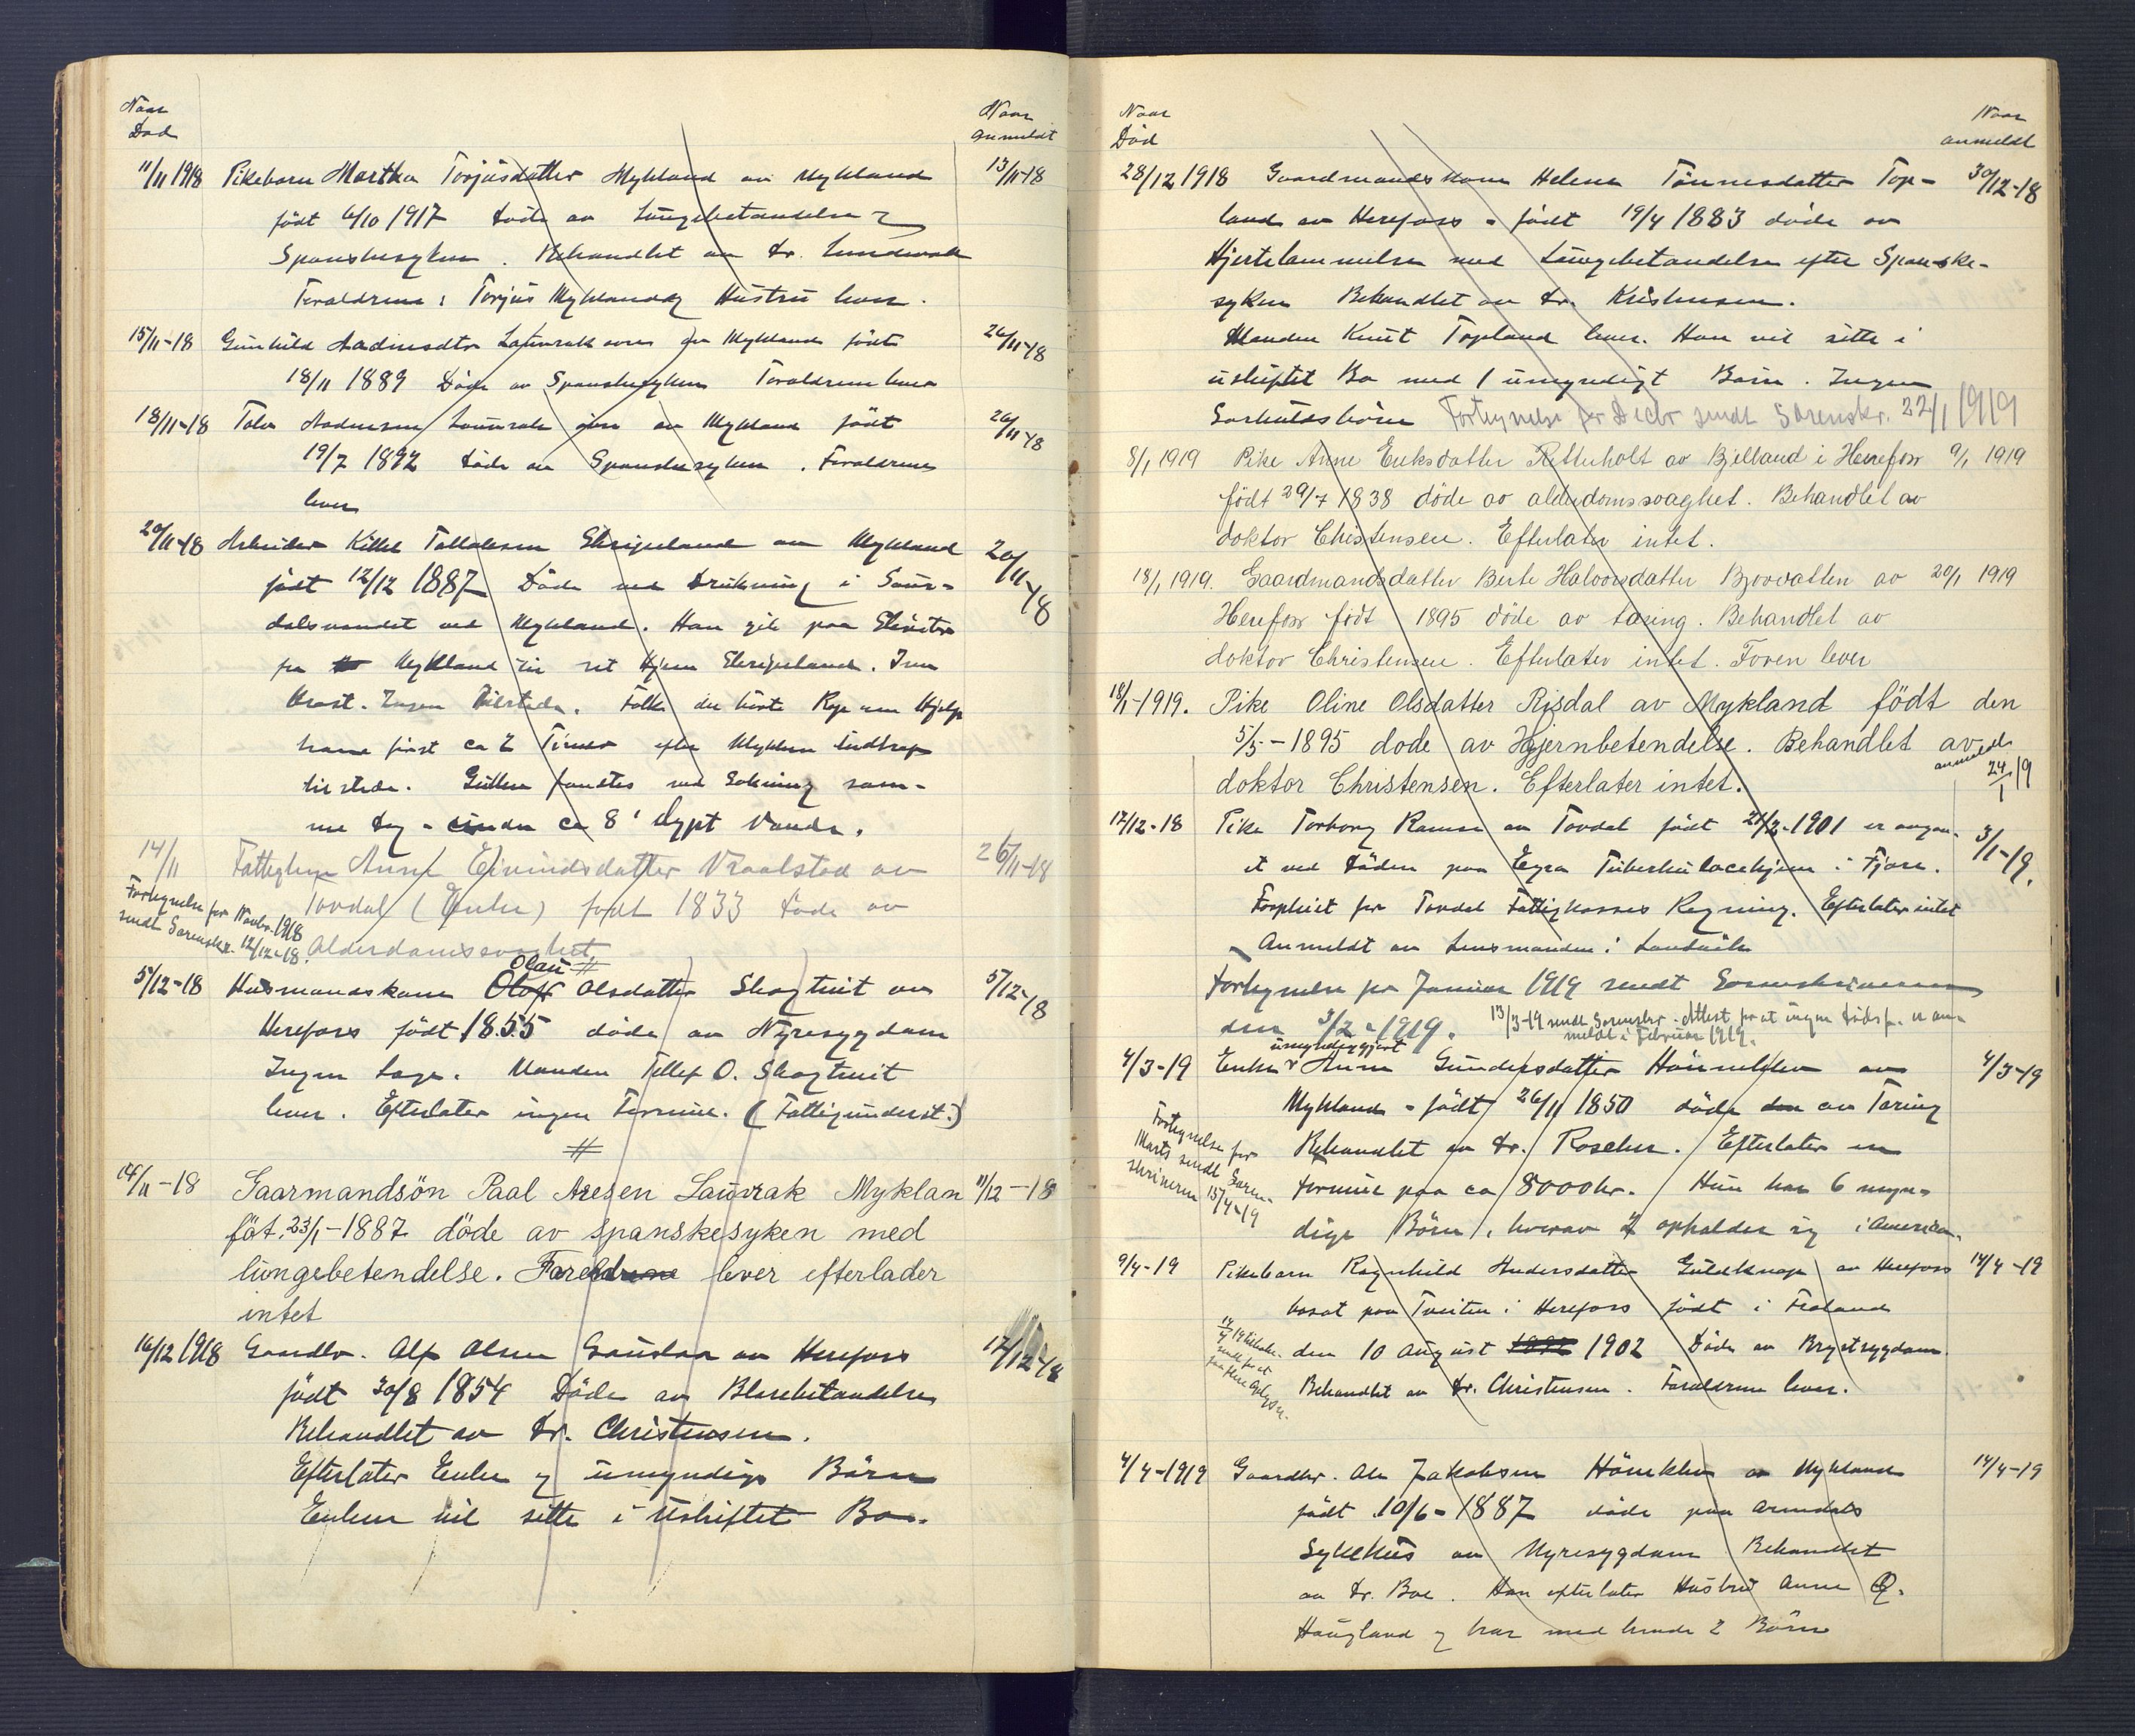 Naar
Död
Naar
anmeldt
11/11 1918 Pikebarn Martha Torjusdatter Mykland av Mykland 13/11-18
födt 6/10 1917 döde av Lungebetændelse &
Spanskesyken. Behandlet av Dr. Lundevold
Foraldrene: Torjus Mykland og Hustru lever.
15/11-18 Gunhild Aadnesdtr Laurrak övre av Mykland födt 26/11-18
18/11 1889 Döde av Spanskesyken Foraldrene lever
18/11-18 Tolv Aadnesen Laurrak övre av Mykland födt 26/11-18
19/7 1892 döde av Spanskesyken. Foraldrene
lever
20/11-18 Arbeider Kittel Tallaksen Skripeland av Mykland 20/11-18
födt 12/12 1887 Döde ved Drukning i Saur-
dalsvandet ved Mykland. Han gik paa Skøiter
fra Mykland til sit Hjem Skripeland. Isen
brast. Ingen tilstede. Folk der hörte Rop om Hjelp
kom först ca 2 Timer efter Ulykkens Indtraf
tilstede. Gutten fandtes ved Sokning sam-
me Dag - under ca 8' dypt Vand.
14/11 Fattiglem Anne Eivindsdatter Vraalstad av 26/11-18
Tovdal (Enke) födt 1833 döde av
Alderdomssvaghet
Fortegnelse for Novbr. 1918
sendt Sorenskr. 12/12-18.
Olau
5/12-18 Husmandskone Olsdatter Skogtveit av 5/12-18
Herefoss födt 1855 döde av Nyresygdom
Ingen Læge. Manden Tellef O. Skogtveit
lever. Efterlater ingen Formue. (Fattigunderst.)
14/11-18 Gaarmandsön Paal Aresen Laurrak Myklan 11/12-18
föt. 23/1-1887 döde av spanskesyken med
lungebetendelse. Foreldrene lever efterlader
intet
16/12 1918 Gaardbr. Alf Olsen Gauslaa av Herefoss 17/12-18
födt 30/8 1854 Döde av Blærebetændelse
Behandlet av Dr. Christensen.
Efterlater Enke og umyndige Börn
Enken vil sitte i Uskiftet Bo.
Naar
Död
Naar
anmeldt
28/12 1918 Gaardmandskone Helene Tönnesdatter Top- 30/12-18
land av Herefoss - födt 19/4 1883 döde av
Hjertelammelse med Lungebetændelse efter Spanske-
syken Behandlet av Dr. Kristensen.
Manden Knut Topland lever. Han vil sitte i
uskiftet Bo med 1 umyndigt Barn. Ingen
Særkuldsbörn Fortegnelse for Decbr sendt Sorenskr. 22/1 1919
8/1 1919 Pike Anne Eriksdatter Retterholt av Bjelland i Herefoss 9/1 1919
födt 29/7 1838 döde av alderdomssvaghet. Behandlet av
doktor Christensen. Efterlater intet.
18/1 1919. Gaardmandsdatter Berte Halvorsdatter Bjorvatten av 20/1 1919
Herefoss födt 1895 döde av tæring. Behandlet av
doktor Christensen. Efterlater intet. Foren lever
18/1-1919. Pike Oline Olsdatter Risdal av Mykland födt den
5/5-1895 dode av Hjernbetendelse. Behandlet av
doktor Christensen. Efterlater intet.
anmeldt
24/1 19
17/12-18 Pike Torborg Ramse av Tovdal födt 21/2-1901 er avgaa- 3/1-19.
et ved Döden paa Egra Tuberkulosehjem i Fjære.
Forpleiet for Tovdal Fattigkasses Regning. Efterlater intet
Anmeldt av Lensmanden i Landvik
Fortegnelse for Januar 1919 sendt Sorenskriveren
den 3/2-1919. 13/3-19 sendt Sorenskr. Attest for at ingen dödsf. er an-
meldt i Februar 1919.
umyndiggjort
4/3-19 Enke Anne Gundersdatter Hövneklev av 4/3-19
Mykland - födt 26/11 1850 döde av Tæring
Behandlet av Dr. Roscher. Efterlater en
Formue paa ca 8000 kr. Hun har 6 myn-
dige Börn, hvorav 2 opholder sig i Amerika.
Fortegnelse for
Marts sendt Soren-
skriveren 15/4-19
9/4-19 Pikebarn Ragnhild Andersdatter Guldknap av Herefoss 14/4-19
bosat paa Tveiten i Herefoss födt i Froland
den 10 August 1902 Döde av Brystsygdom.
Behandlet av Dr. Christensen. Foraldrene lever.
4/4-1919 Gaardbr. Ole Jakobsen Höneklev av Mykland 14/4-19
födt 10/6-1887 döde paa Arendals
Sykehus av Nyresygdom Behandlet
av Dr. Boe. Han efterlater Hustru Anne O.
Haugland og har med hende 2 Börn